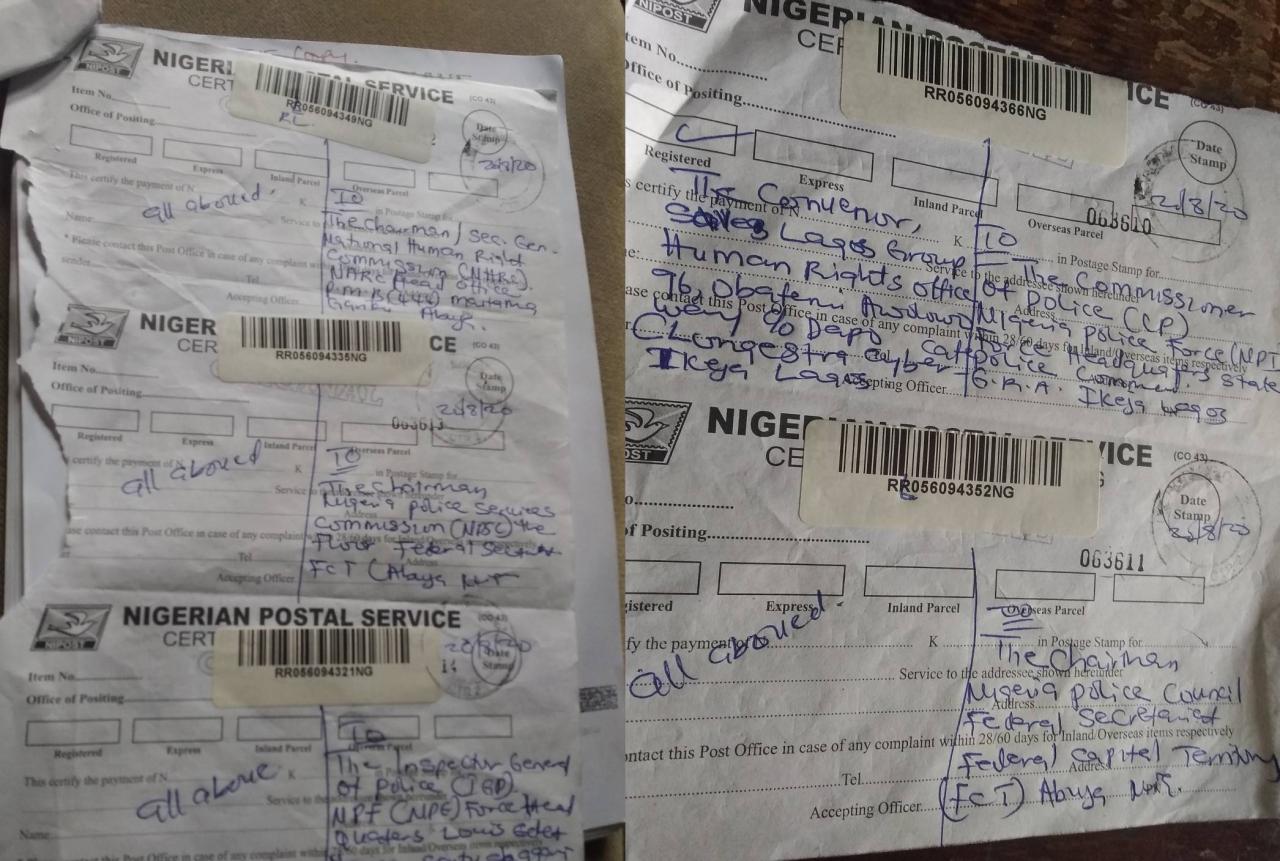 Copy.
NIPOST
NIGERIAN POSTAL SERVICE
CERT
(CO 43)
RR056094349NG
RL
Item No.
Office of Positing
Date Stamp
Registered Express Inland Parcel Overseas Parcel
This certify the payment of N K in Postage Stamp for
all aboued
TO
Name
Service to
The Chairman/Sec. Gen.
National Human Right
* Please contact this Post Office in case of any complaint
Commission (NHRC).
sender
Tel
NHRC Head office
Accepting Officer
P.M.B (444) maitama
Abuja.
NIPOST
NIGER
CE
RR056094335NG
Item No.
Office of Positing
Date Stamp
Registered Express Inland Parcel Overseas Parcel
certify the payment of N K in Postage Stamp for
all aboued
TO
Service to
The Chairman
Nigeria police Services
Address
Commission (NPSC) the
ase contact this Post Office in case of any complaint within 28/60 days for Inland/Overseas items respectively
Floor Federal
Tel Address
Accepting Officer
FCT (Abuja
NIPOST
NIGERIAN POSTAL SERVICE
CERT
RR056094321NG
14
Date Stamp
Item No.
Office of Positing
Registered Express Inland Parcel Overseas Parcel
TO
This certify the payment of N K
all above
The Inspector General
of Police (IGP)
Service to the
NPF (NPF) Force Head
Name
Quaters Louis Edet
NIPOST
NIGERIAN POSTAL SERVICE
CER ICE
(CO 43)
RR056094366NG
tem No.
Office of Positing
Date Stamp
20/8/20
063610
Registered Express Inland Parcel Overseas Parcel
s certify the payment of N K in Postage Stamp for
The Convenor,
TO
Lagos Group
The Commissioner
Service to the addressee shown hereunder
Human Rights office
of Police (CP)
Address
96, Obafemi Awolowo
Nigeria police Force (NPF)
ase contact this Post Office in case of any complaint within 28/60 days for Inland/Overseas items respectively
way c/o Dapo
Police Headquaters State
cyber cafe
Police Command
Accepting Officer
Ikeja Lagos
G.R.A. Ikeja Lagos
OST
NIGERIAN POSTAL SERVICE
CE
(CO 43)
RR056094352NG
o.
f Positing
Date Stamp
063611
gistered Express Inland Parcel Overseas Parcel
fy the payment of N K in Postage Stamp for
TO
all aboued
The Chairman
Service to the addressee shown hereunder
Nigeria police Council
Address
Federal Secretariat
ontact this Post Office in case of any complaint within 28/60 days for Inland/Overseas items respectively
Federal Capital Territory
Tel Address
Accepting Officer
(FCT) Abuja